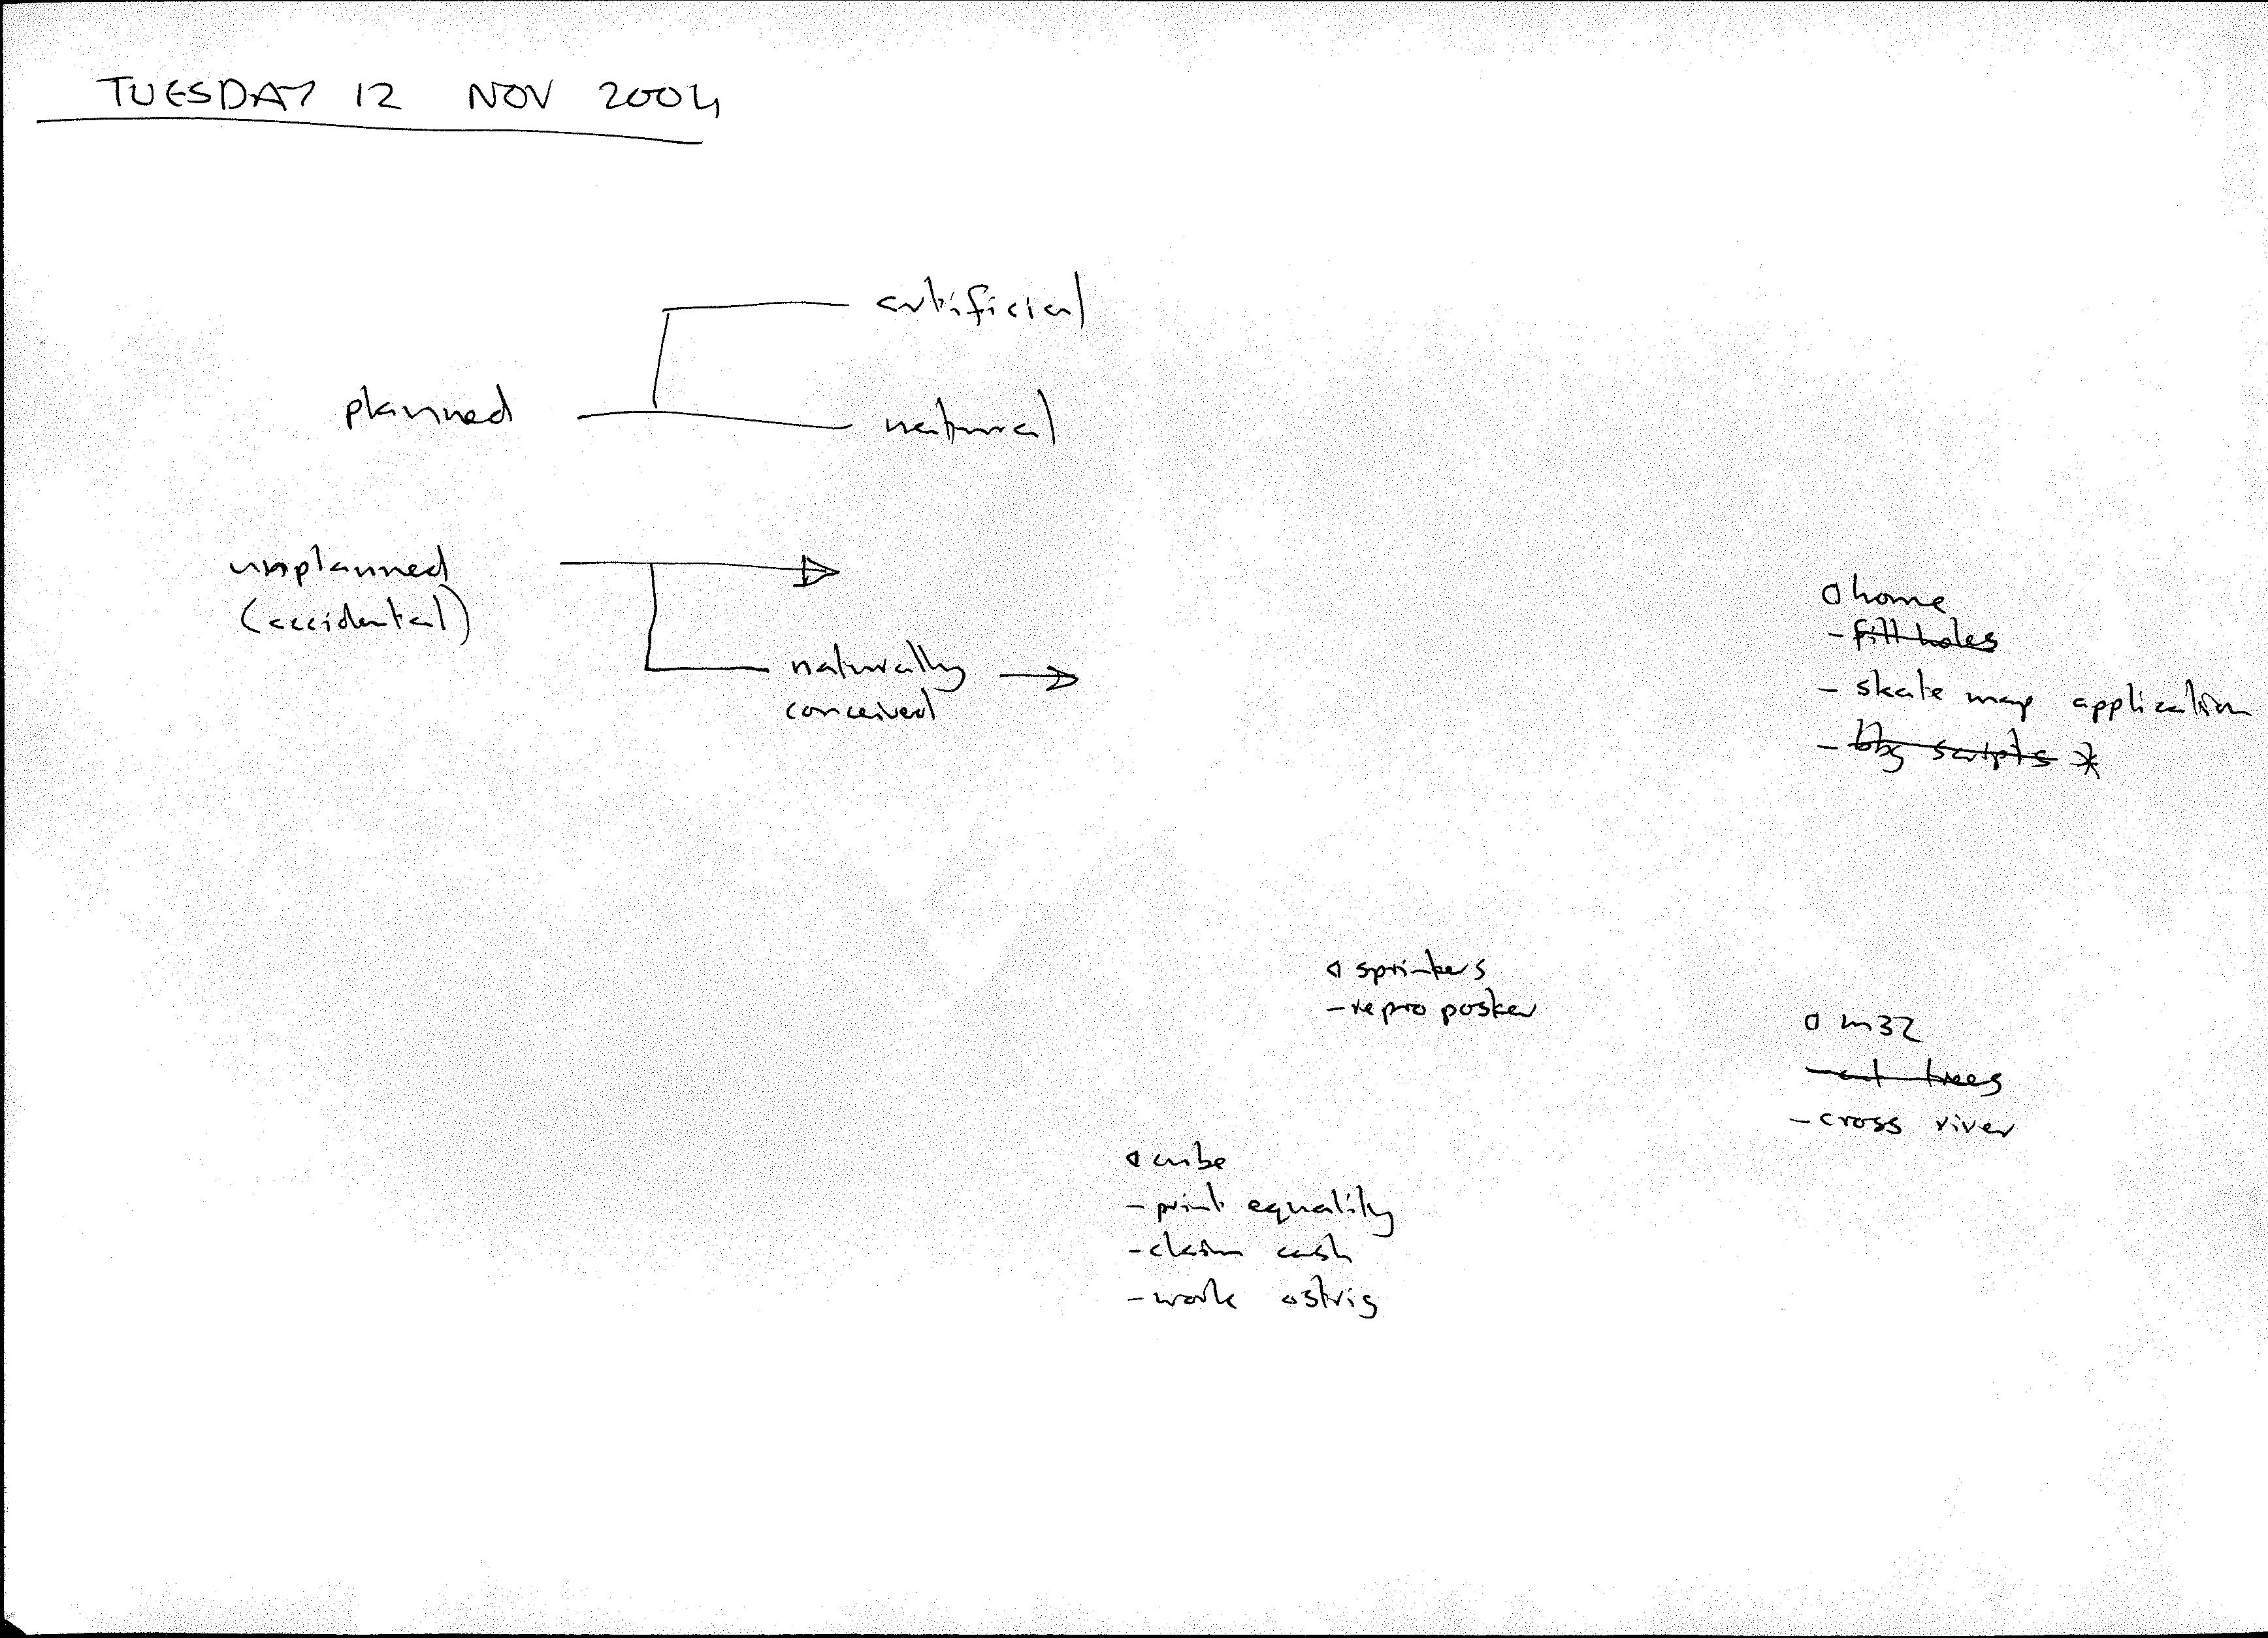 TUESDAY 12 NOV 2004
artificial
planned
natural
unplanned
(accidental)
naturally
conceived
home
- fill holes
- skate map application
- scripts *
- repro poster
m32
- cut trees
- cross river
cube
- print equality
- claim cash
- work